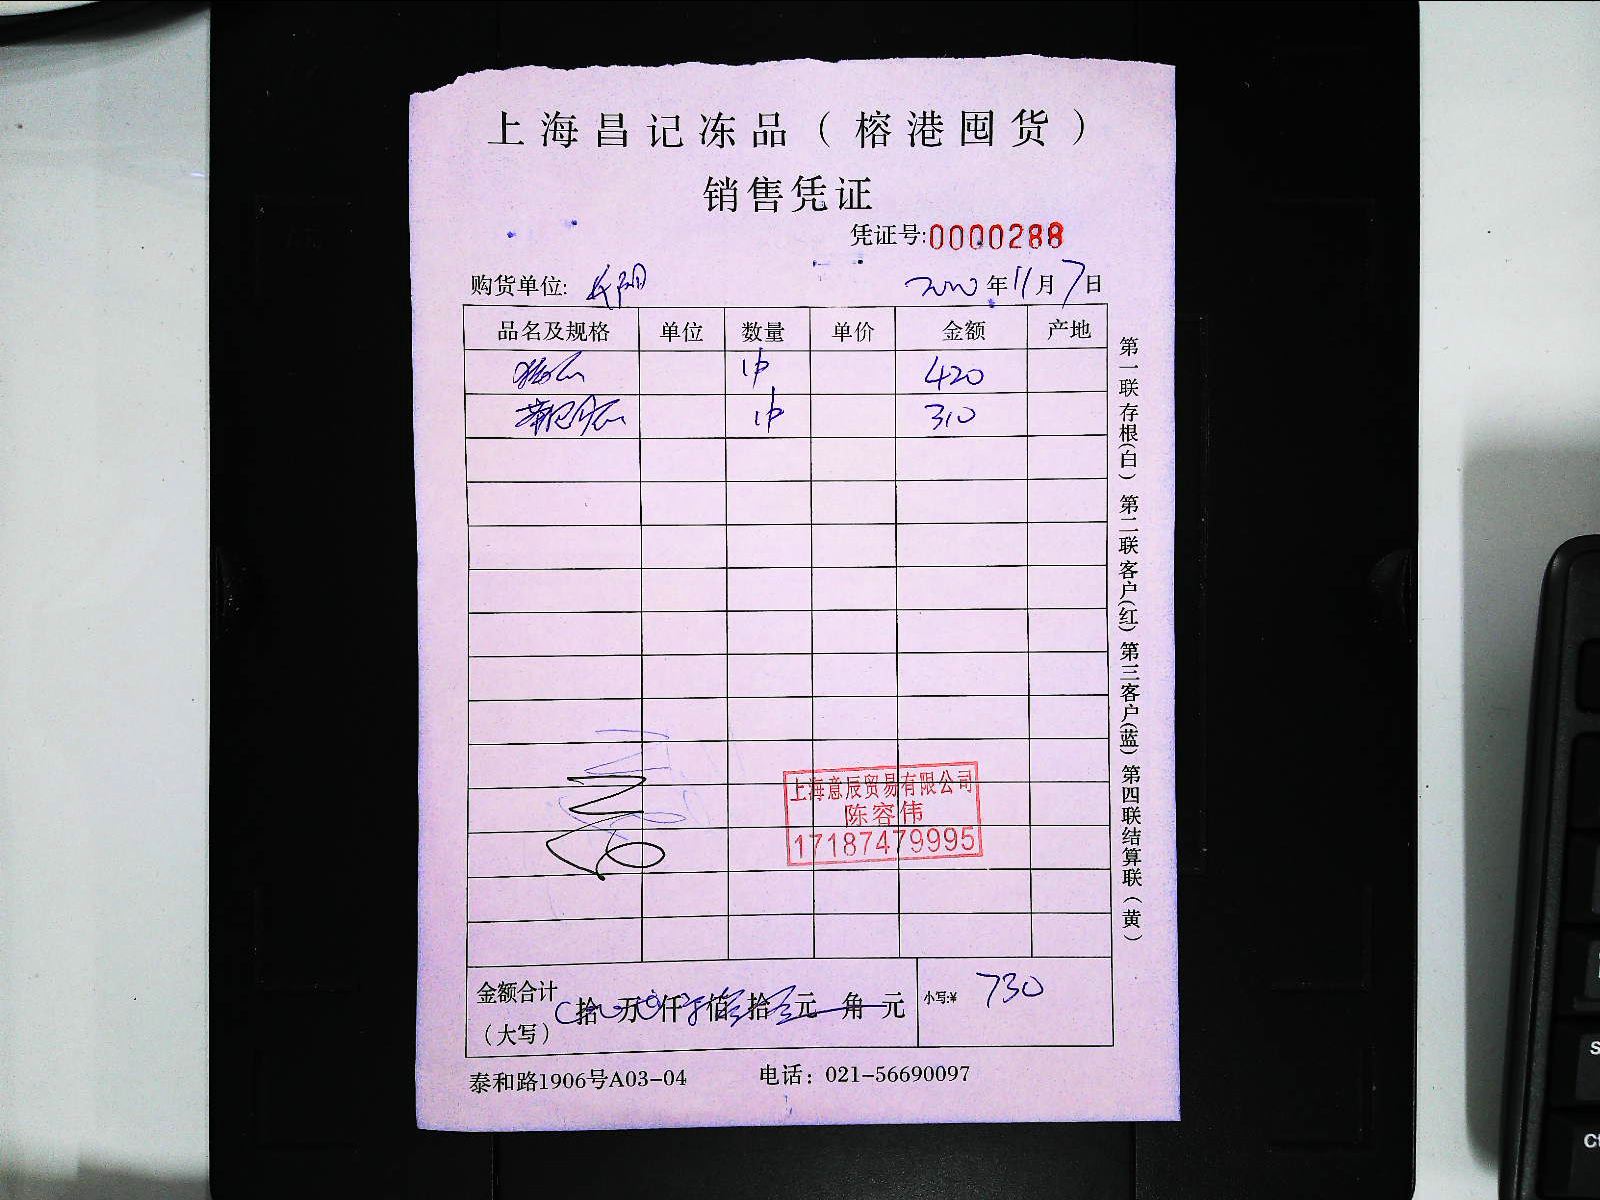 上海昌记冻品（榕港囤货）
销售凭证
凭证号:0000288
购货单位:
2020年11月7日
品名及规格 单位 数量 单价 金额 产地
1件 420
1件 310
上海意辰贸易有限公司
陈容伟
17187479995
金额合计（大写） 拾 万 仟 佰 拾 元 角 元 小写:¥ 730
泰和路1906号A03-04 电话：021-56690097
第一联存根(白) 第二联客户(红) 第三客户(蓝) 第四联结算联(黄)